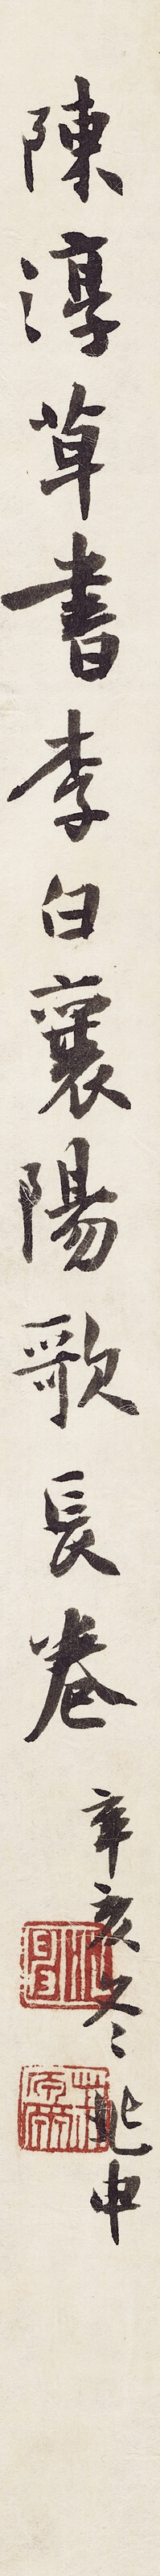 陳淳草書李白襄陽歌長卷
辛亥冬兆申